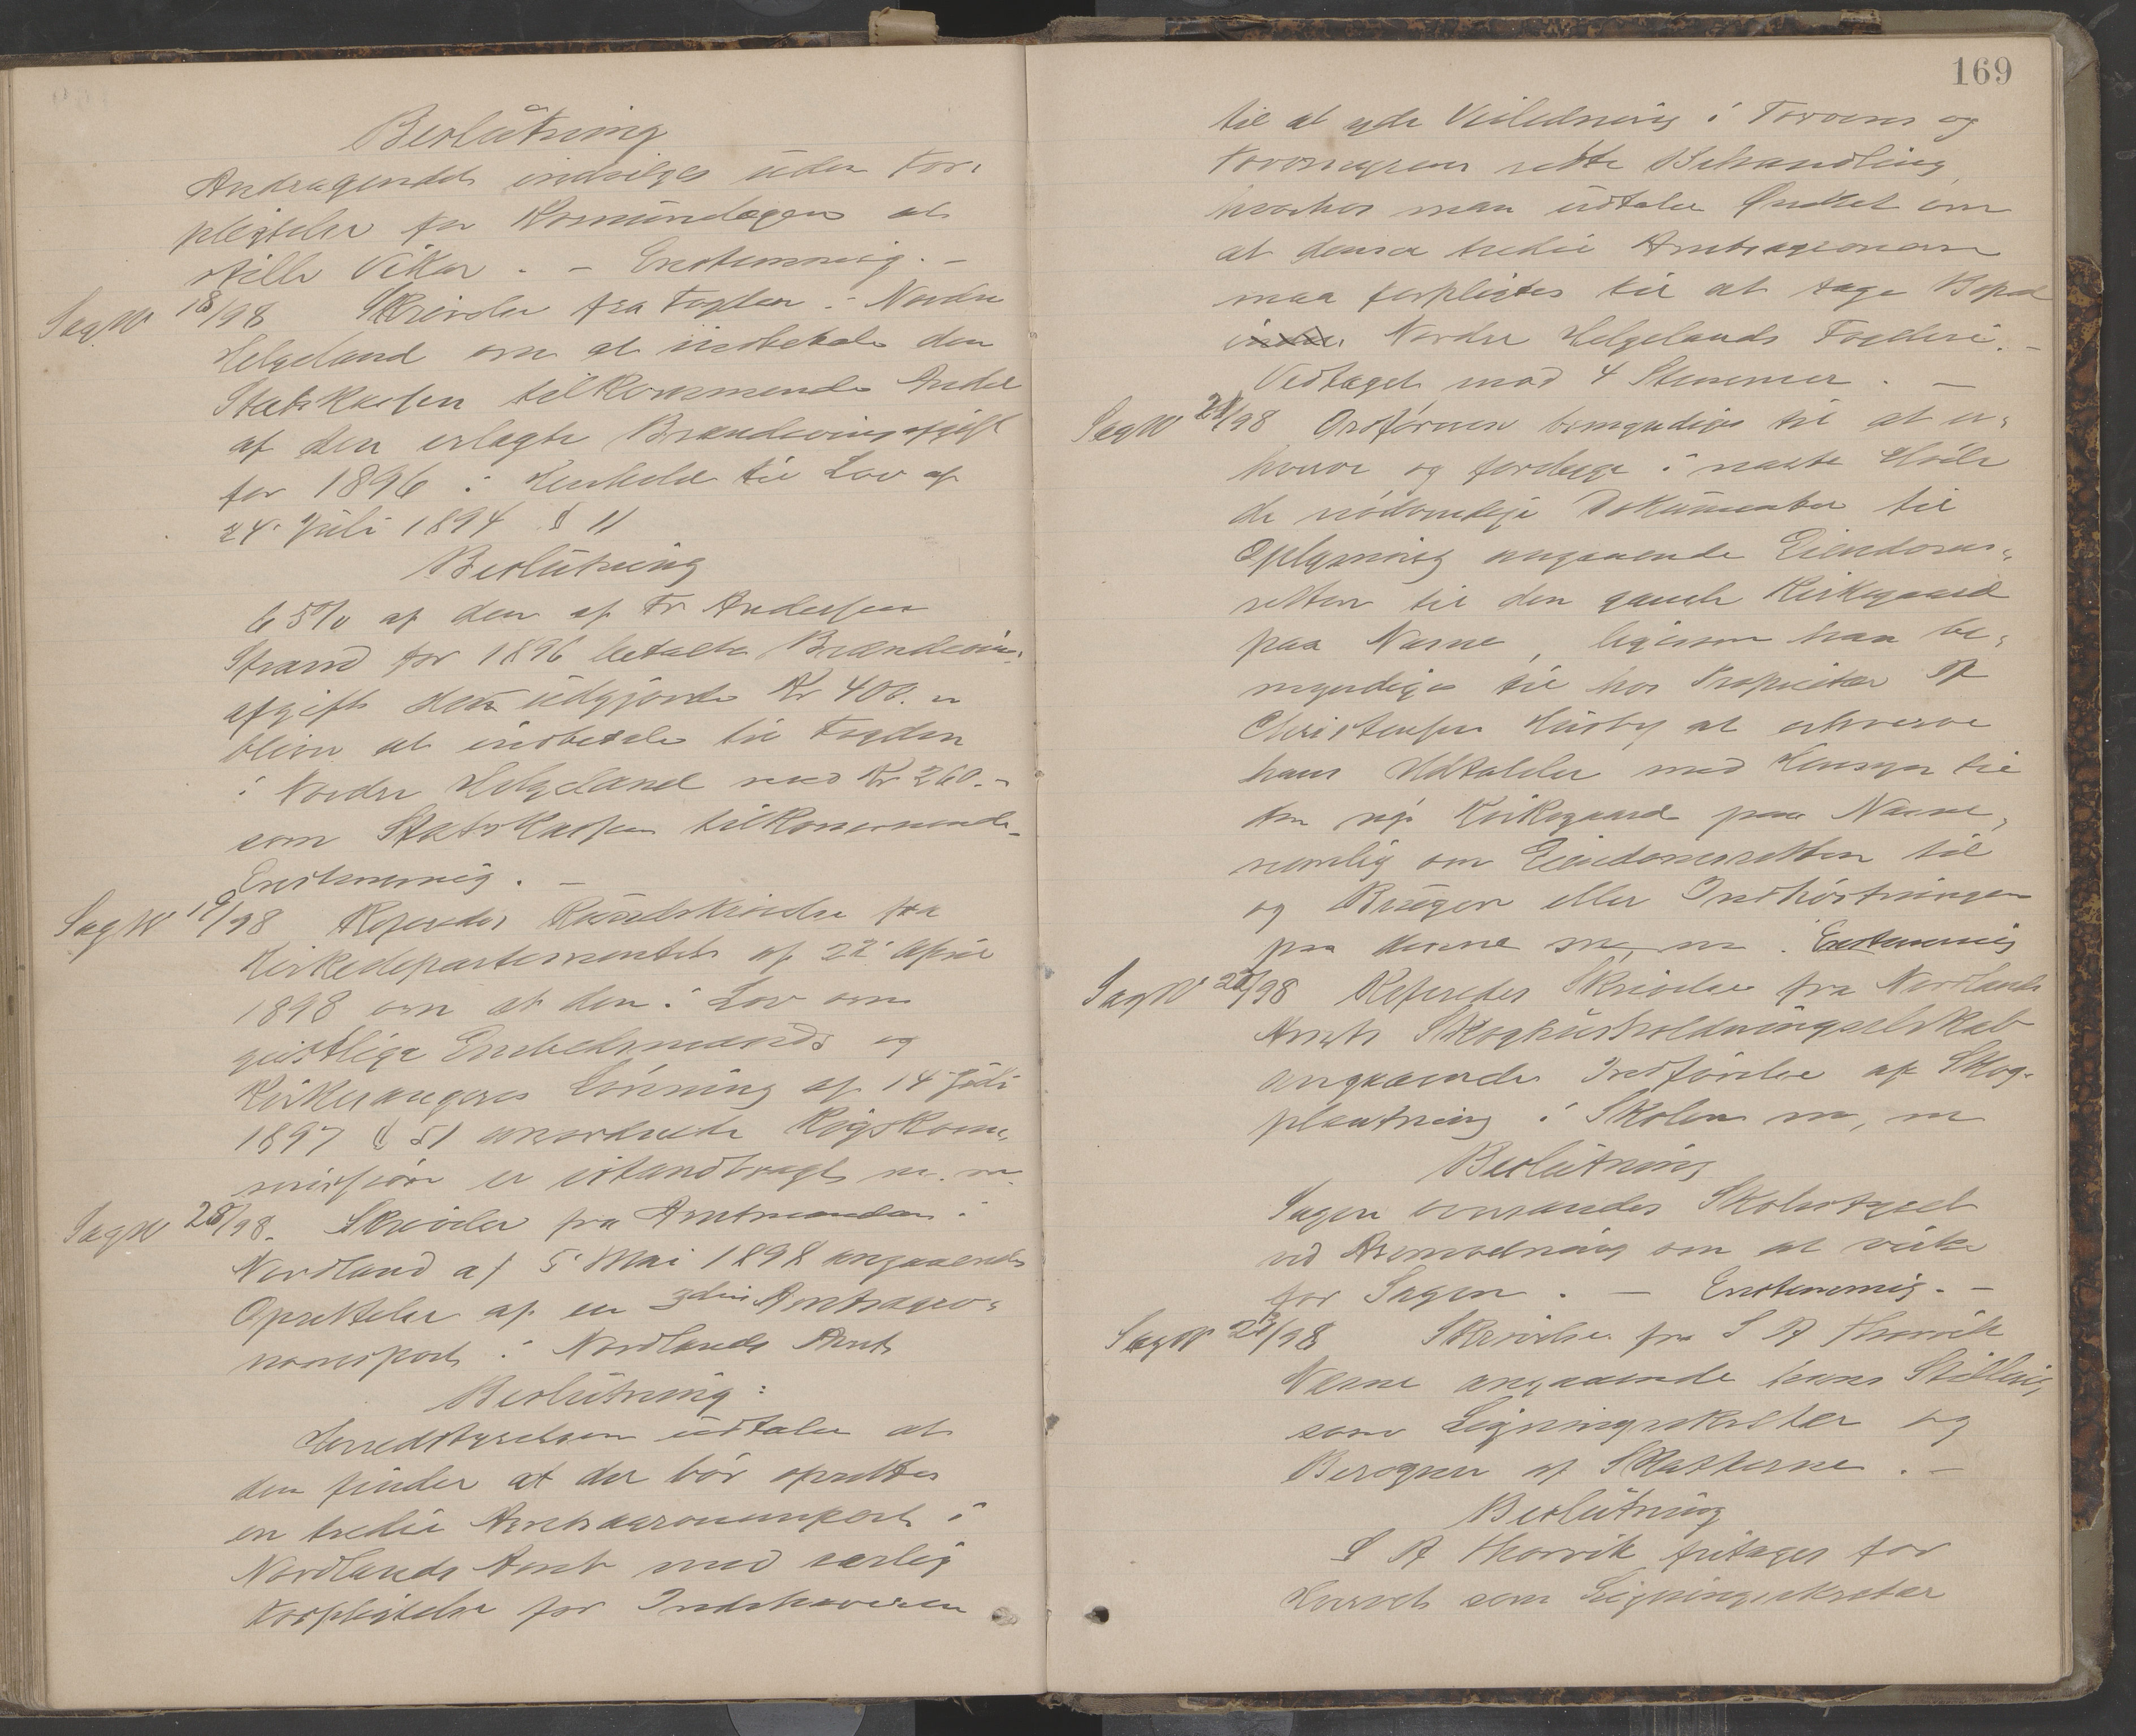 Beslutning
Andragendet indvilges uden For-
pligtelse for Komunelægen at
stille Vikar. - Enstemmig. -
Sag № 18/98 Skrivelse fra Fogden i Nordre
Helgeland om at indbetale den
Statskassen tilkommende Andel
af den erlagte Brændevinsafgift
for 1896 i Henhold til Lov af
24 Juli 1894 § 11
Beslutning
65% af den af Fr Andersen
Strand for 1896 betalte Brændevins-
afgift der udgjorde Kr 400.-
bliver at indbetale til Fogden
i Nordre Helgeland med Kr 260.-
som Statskassen tilkommende.
Enstemmig. -
Sag № 19/98 Refereder Rundskrivelse fra
Kirkedepartementet af 22 April
1898 om at den i Lov om
geistlige Embedsmænds og
Kirkesangeres Lönning af 14 Juli
1897 § 51 anordnede Kom-
mission er istandbragt m. m.
Sag № 20/98. Skrivelse fra Amtmanden i
Nordland af 5 Mai 1898 angaaende
Oprettelse af en 3die Amtsagro-
nompost i Nordlands Amt
Beslutning:
Herredstyrelsen udtaler at
den finder at der bör oprettes
en tredie Amtsagronompost i
Nordlands Amt med særlig
Forpligtelse for Indehaveren
169
til at yde Veiledning i Torvens og
Torvmyrens rette Behandling,
hvorhos man udtaler Önsket om
at denne tredie Amtsagronom
maa forpligtes til at tage Bopæl
Nordre Helgelands Fogderi. -
Vedtaget mod 4 Stemmer. -
Sag № 21/98 Ordföreren bemyndiges til at er-
hverve og fordrage i
de nödvendige Dokumenter til
Oplysning angaaende Eiendoms-
retten til den gamle Kirkegaard
paa Næsne, ligesom han be-
myndiges til hos Proprietær A
Christensen Husby at erhverve
hans Udtalelse med Hensyn til
den nye Kirkegaard paa Næsne,
nemlig om Eiendomsretten til
og Brugen eller Indhöstningen
paa denne m, m. Enstemmig
Sag № 22/98 Refereder Skrivelse fra Nordlands
Amts Skoghusholdningselskab
angaaende Indförelse af Skog-
plantning i Skolen m, m
Beslutning
Sagen oversendes Skolestyret
med Anmodning om at virke
for Sagen. - Enstemmig. -
Sag № 23/98 Skrivelse fra S A Thorvik
Næsne angaaende hans Stilling
som Ligningssekretær og
Beregner af Skatterne. -
Beslutning
S A Thorvik fritages for
Hvervet som Ligningssekretær